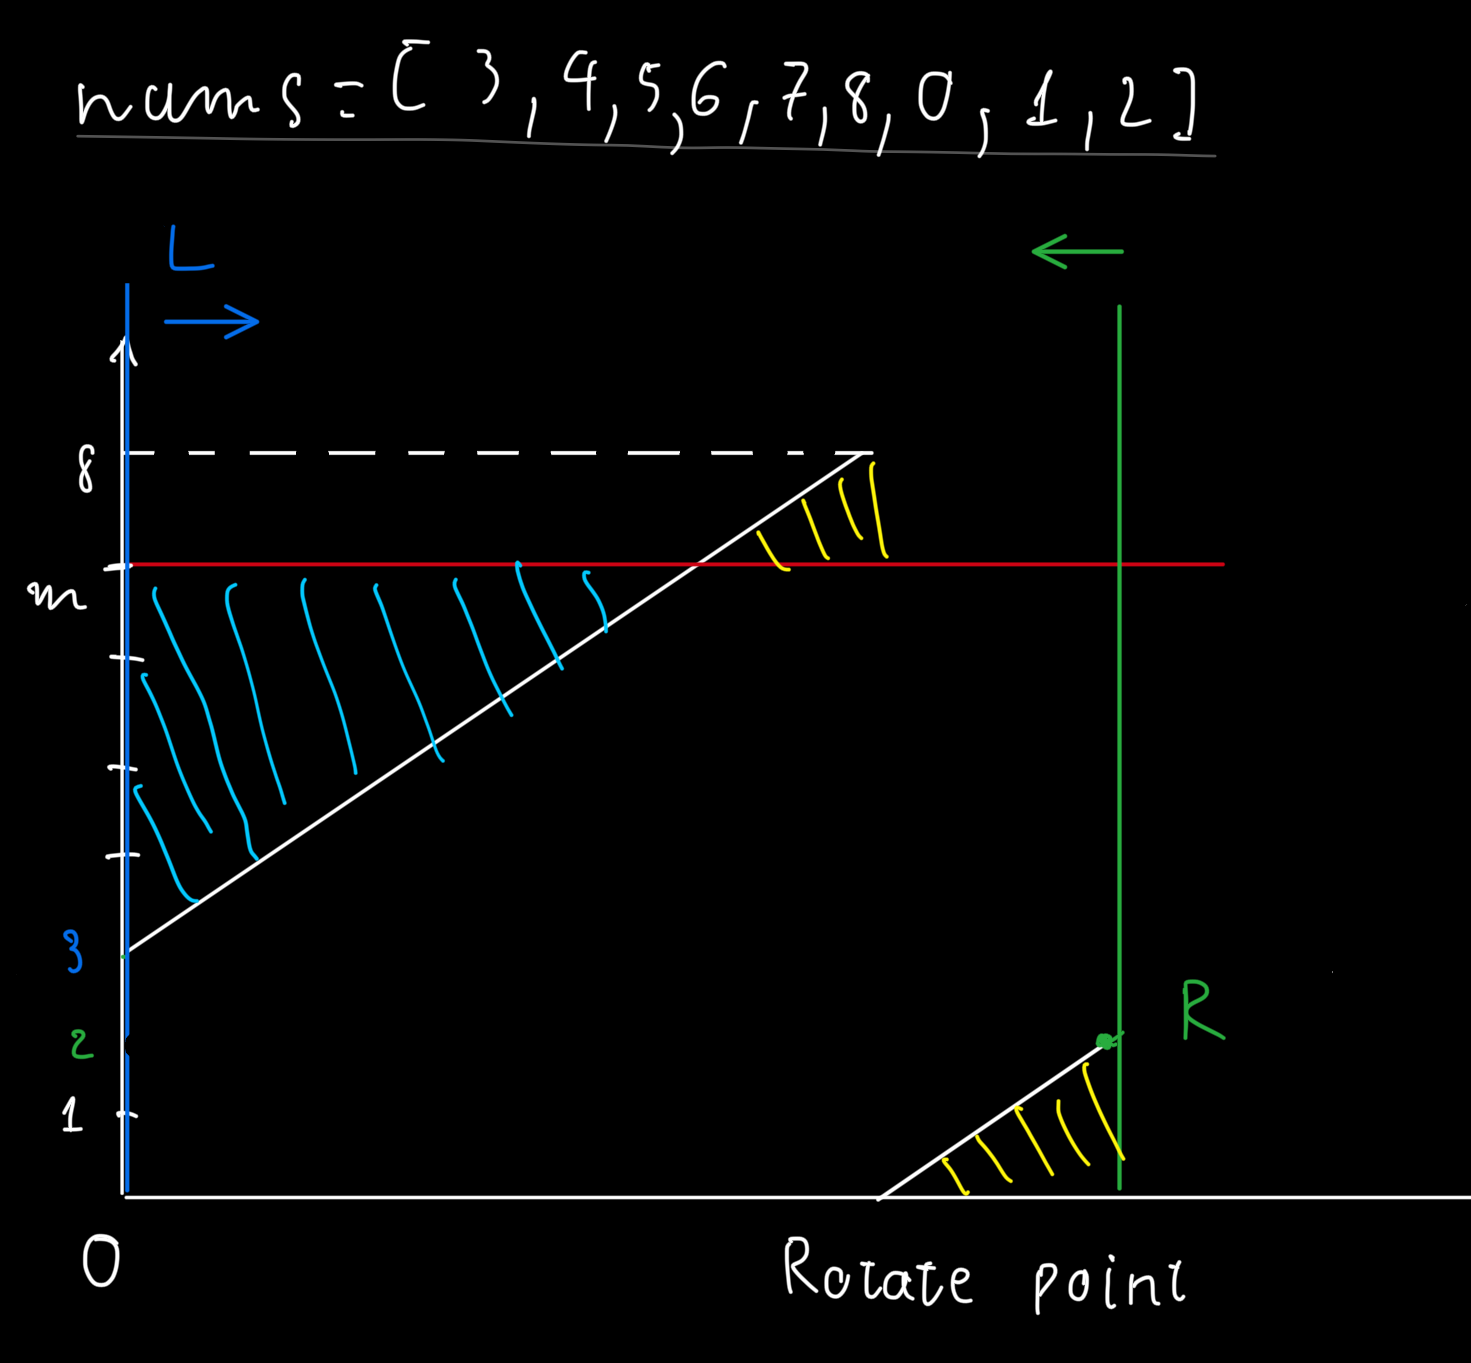 nums=[3,4,5,6,7,8,0,1,2]
L
8
m
3
2
R
1
0
Rotate point